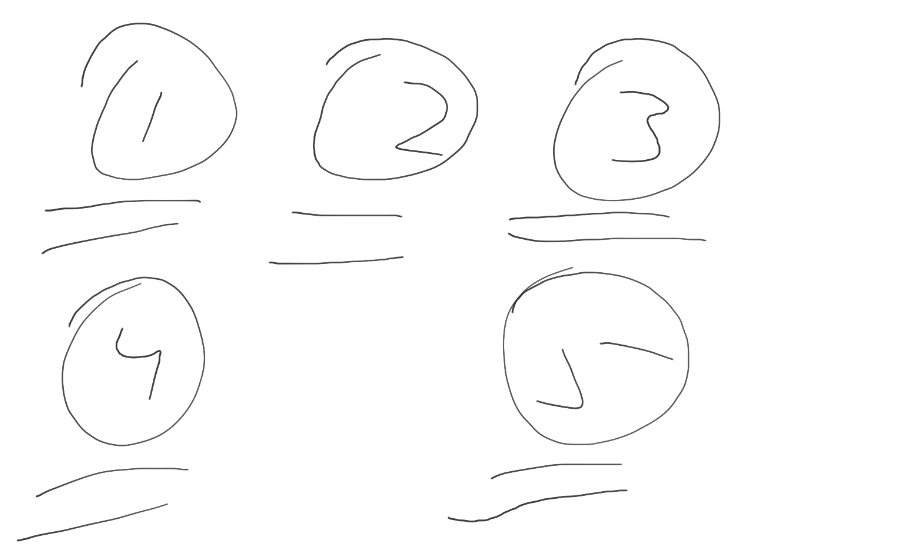 1 2 3
4 5